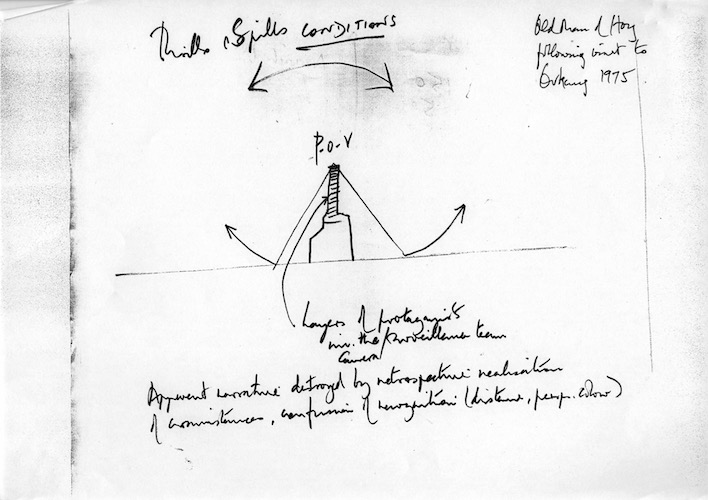 Thrills & Spills CONDITIONS
Old Man of Hoy
following visit to
Orkney 1975.
P.O.V
Layers of protagonists
inc. the surveillance team
camera
Apparent narrative destroyed by retrospective realisation
of circumstances, confusion of recognition (distance, persp. colour)